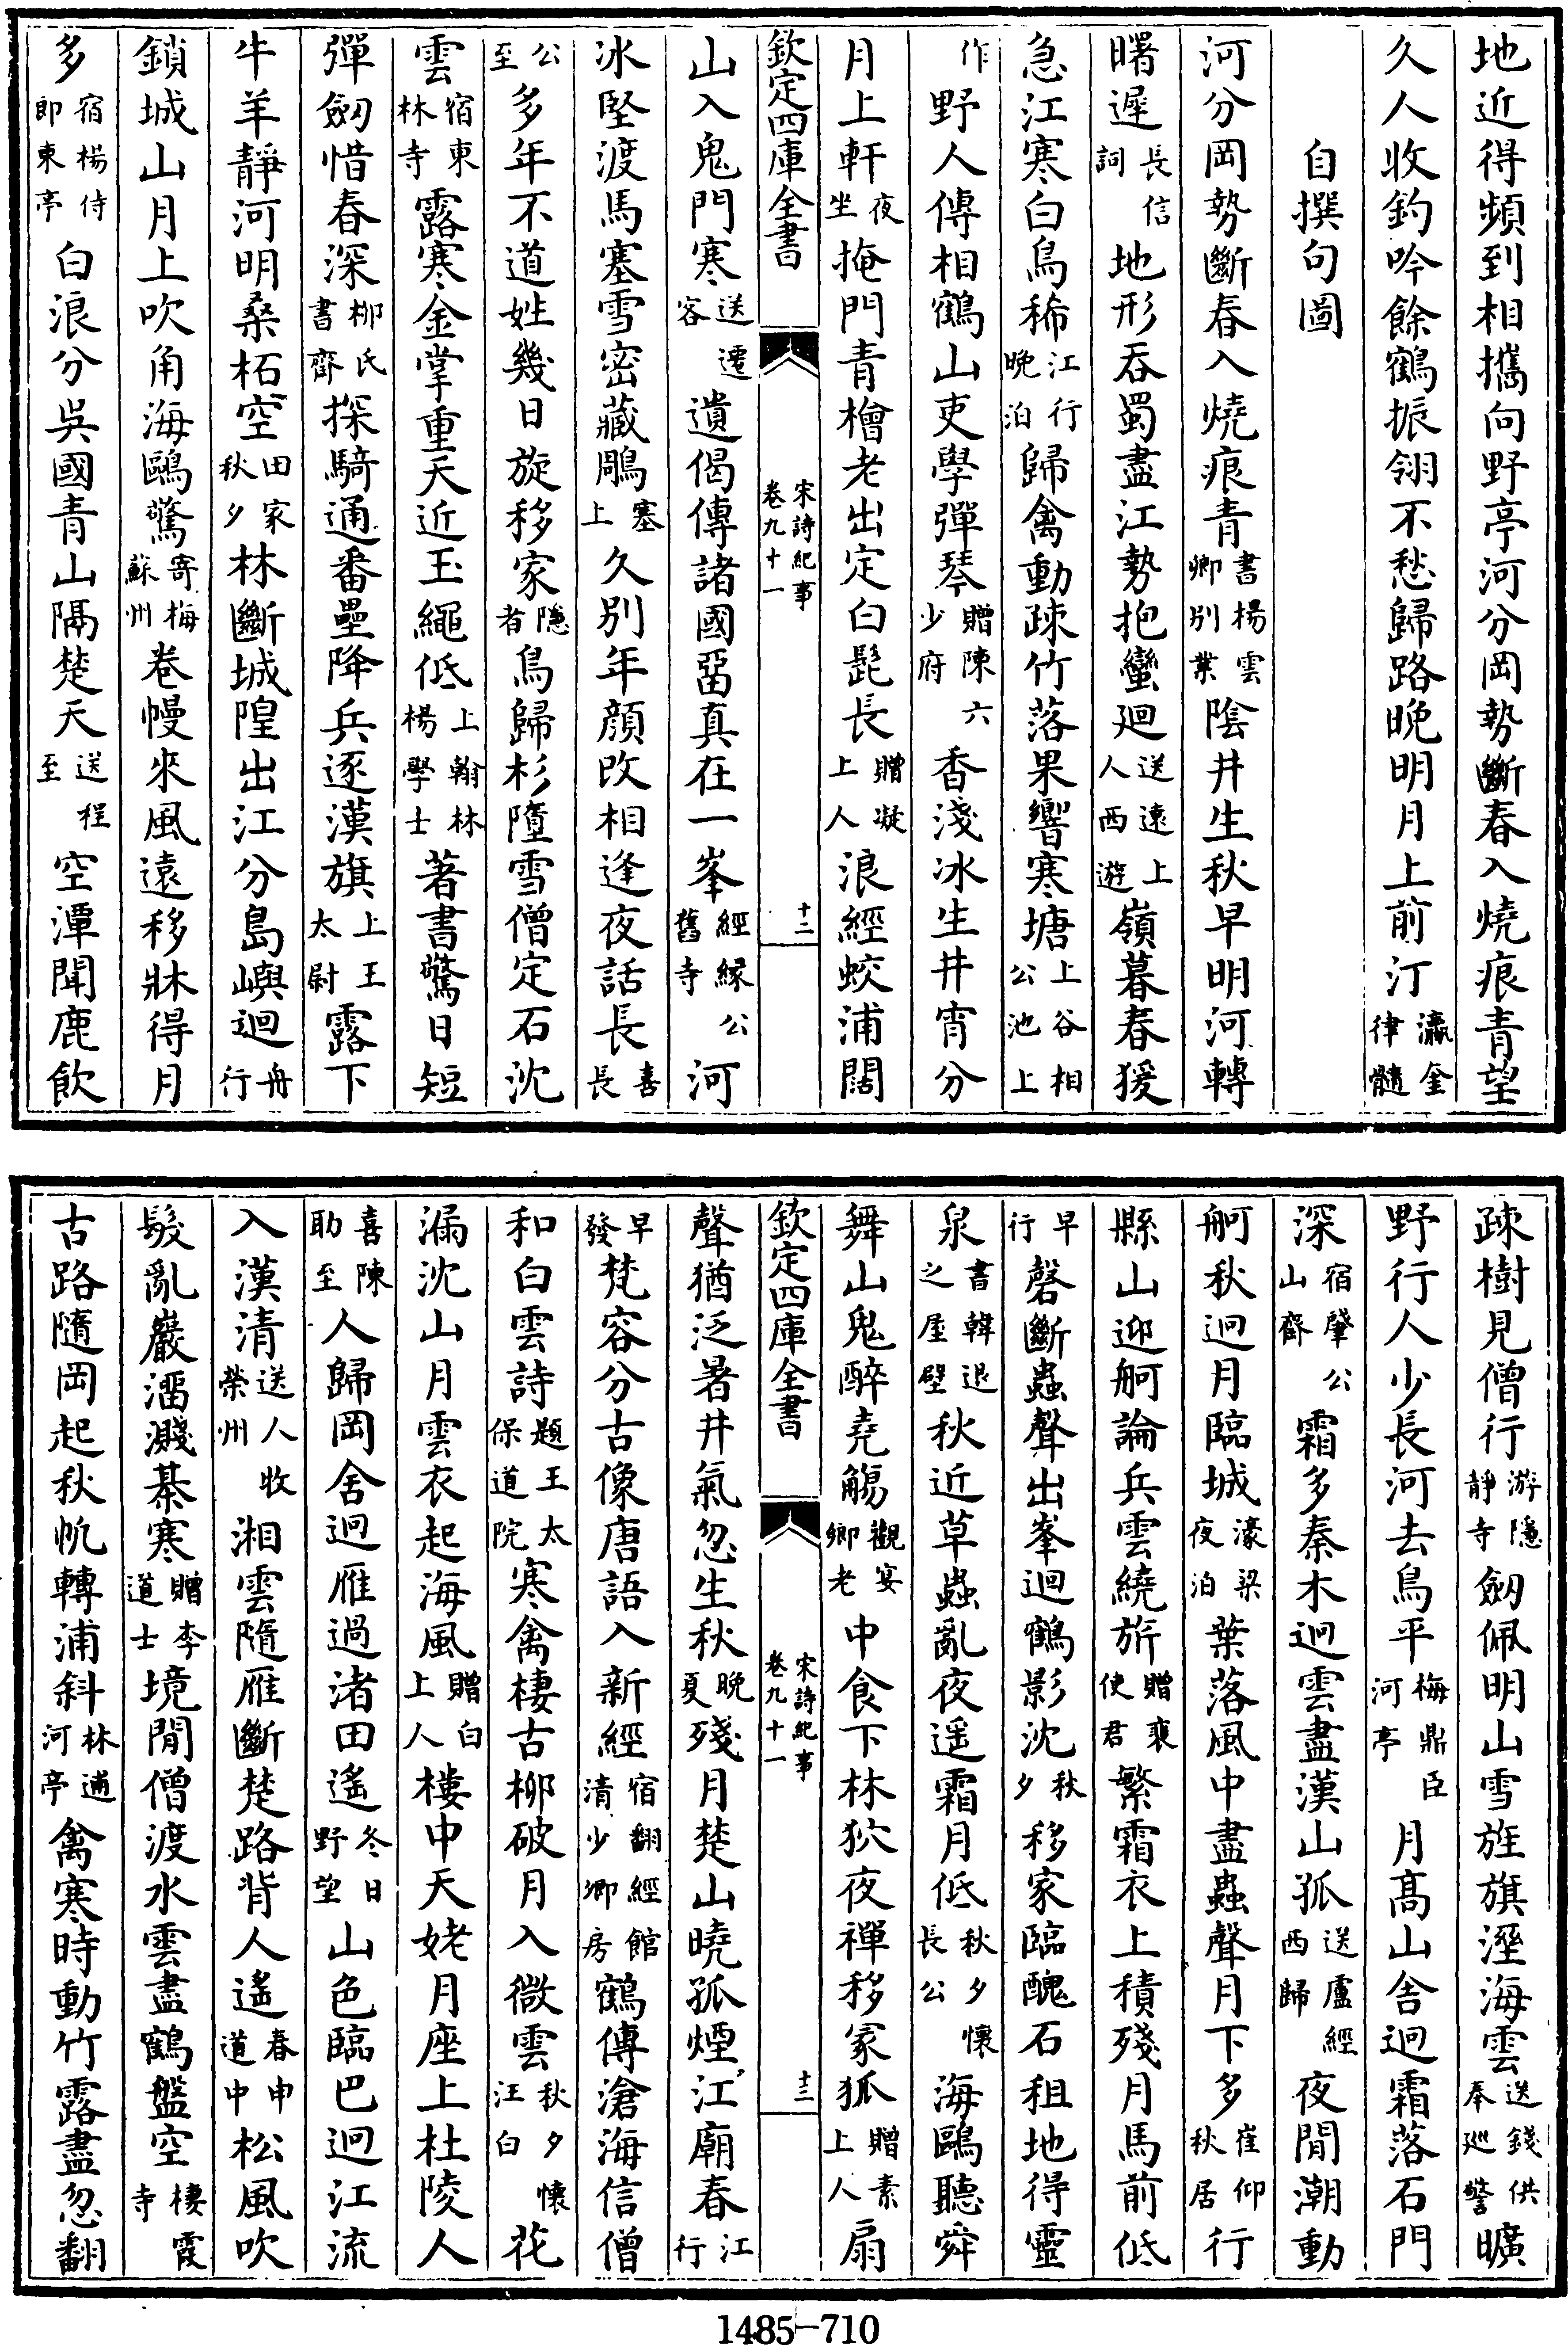 地近得頻到相攜向野亭河分岡勢斷春入燒痕青望
久人收釣吟餘鶴振翎不愁歸路晚明月上前汀瀛奎律髓
自撰句圖
河分岡勢斷春入燒痕青書楊雲卿別業陰井生秋早明河轉
曙遲長信詞地形吞蜀盡江勢抱蠻廻送遠上人西遊嶺暮春猨
急江寒白鳥稀江行晚泊歸禽動疎竹落果響寒塘上谷相公池上
作野人傳相鶴山吏學彈琴贈陳六少府香淺冰生井宵分
月上軒夜坐掩門青檜老出定白髭長贈凝上人浪經蛟浦闊
欽定四庫全書
宋詩紀事
卷九十一
十二
山入鬼門寒送遷客遺偈傳諸國畱真在一峯經緣公舊寺河
冰堅渡馬塞雪密藏鵰塞上久別年顏改相逢夜話長喜長
公至多年不道姓幾日旋移家隱者鳥歸杉墮雪僧定石沈
雲宿東林寺露寒金掌重天近玉繩低上翰林楊學士著書驚日短
彈劒惜春深柳氏書齋探騎通番壘降兵逐漢旗上王太尉露下
牛羊靜河明桑柘空田家秋夕林斷城隍出江分島嶼迴舟行
鎖城山月上吹角海鷗驚寄梅蘇州卷幔來風遠移牀得月
多宿楊侍郎東亭白浪分吳國青山隔楚天送程至空潭聞鹿飲
疎樹見僧行游隱靜寺劒佩明山雪旌旗溼海雲送錢供奉巡警曠
野行人少長河去鳥平梅鼎臣河亭月髙山舍迥霜落石門
深宿肇公山齋霜多秦木迥雲盡漢山孤送盧經西歸夜閒潮動
舸秋迥月臨城濠梁夜泊葉落風中盡蟲聲月下多崔仰秋居行
縣山迎舸論兵雲繞旂贈裵使君繁霜衣上積殘月馬前低
早行磬斷蟲聲出峯迴鶴影沈秋夕移家臨醜石租地得靈
泉書韓退之屋壁秋近草蟲亂夜遥霜月低秋夕懷長公海鷗聽舜
舞山鬼醉堯觴觀宴鄉老中食下林狖夜禪移冢狐贈素上人扇
欽定四庫全書
宋詩紀事
卷九十一
十三
聲猶泛暑井氣忽生秋晚夏殘月楚山曉孤煙江廟春江行
早發梵容分古像唐語入新經宿翻經館清少卿房鶴傳滄海信僧
和白雲詩題王太保道院寒禽棲古柳破月入微雲秋夕懷汪白花
漏沈山月雲衣起海風贈白上人樓中天姥月座上杜陵人
喜陳助至人歸岡舍迥雁過渚田遙冬日野望山色臨巴迥江流
入漢清送人牧榮州湘雲隨雁斷楚路背人遙春申道中松風吹
髮亂巖溜濺棊寒贈李道士境閒僧渡水雲盡鶴盤空棲霞寺
古路隨岡起秋帆轉浦斜林逋河亭禽寒時動竹露盡忽翻
1485-710